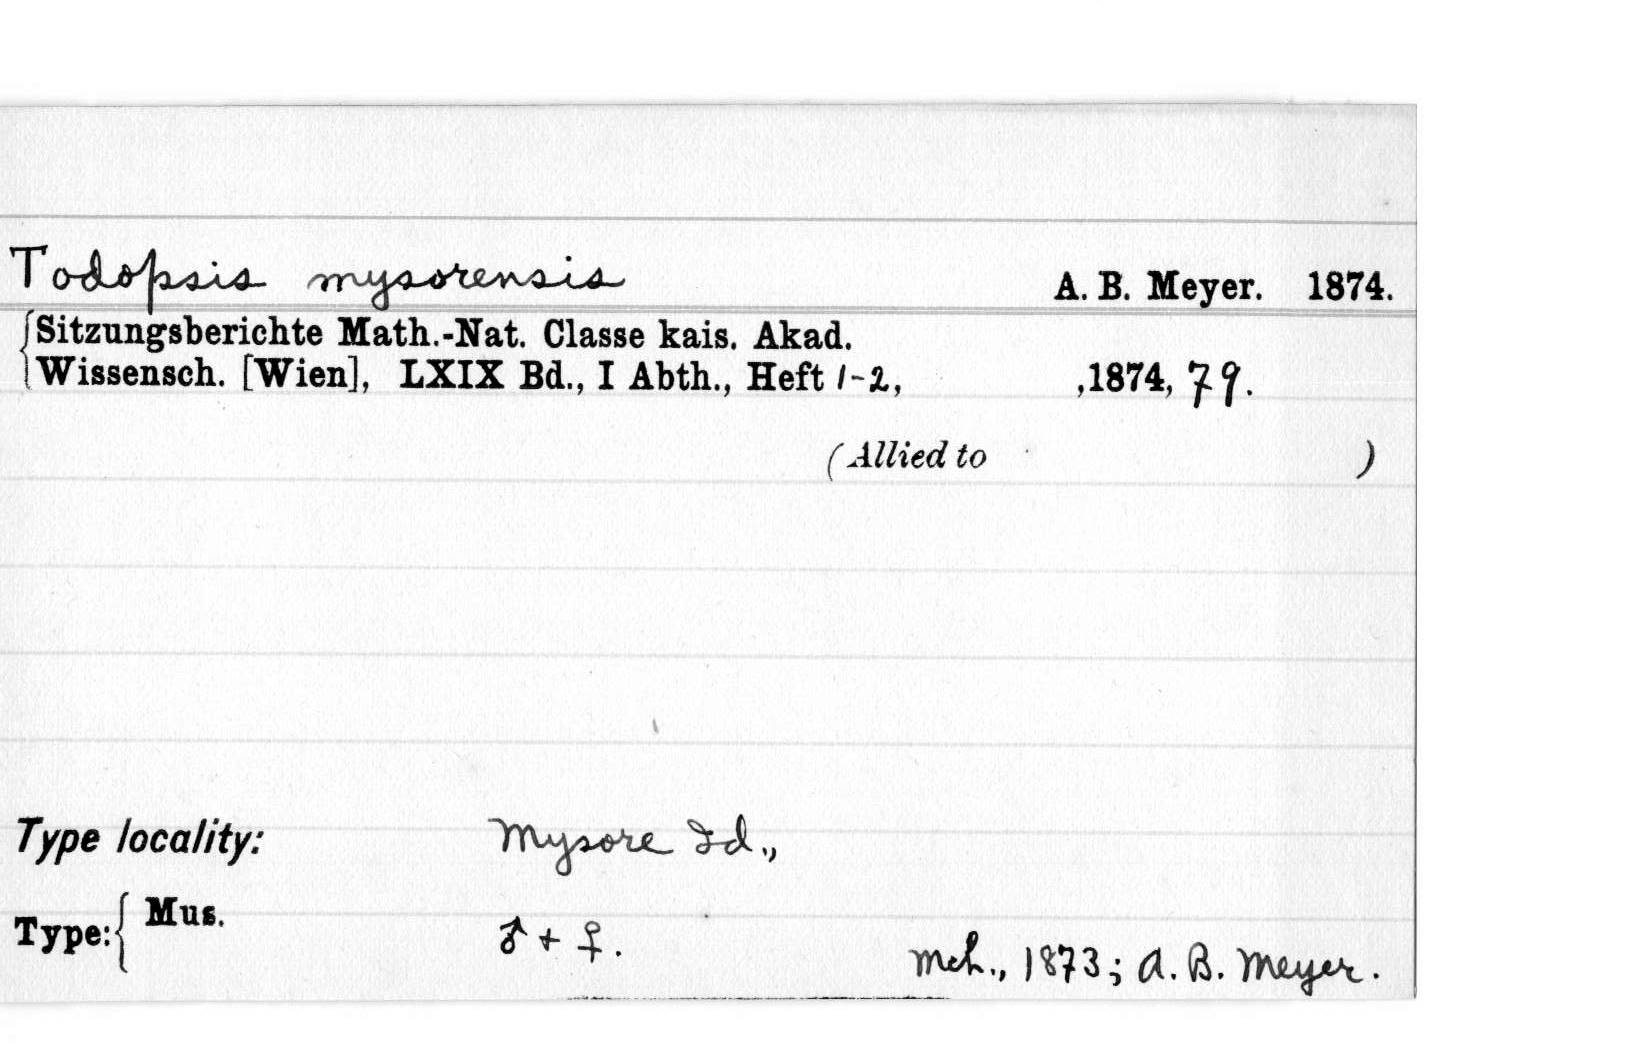 Todopsis mysorensis A. B. Meyer. 1874.
{Sitzungsberichte Math.-Nat. Classe kais. Akad.
Wissensch. [Wien], LXIX Bd., I Abth., Heft 1-2, ,1874, 79.
(Allied to )
Type locality: Mysore Id.,
Type:{ Mus.
♂ + ♀.
Mch., 1873; A. B. Meyer.